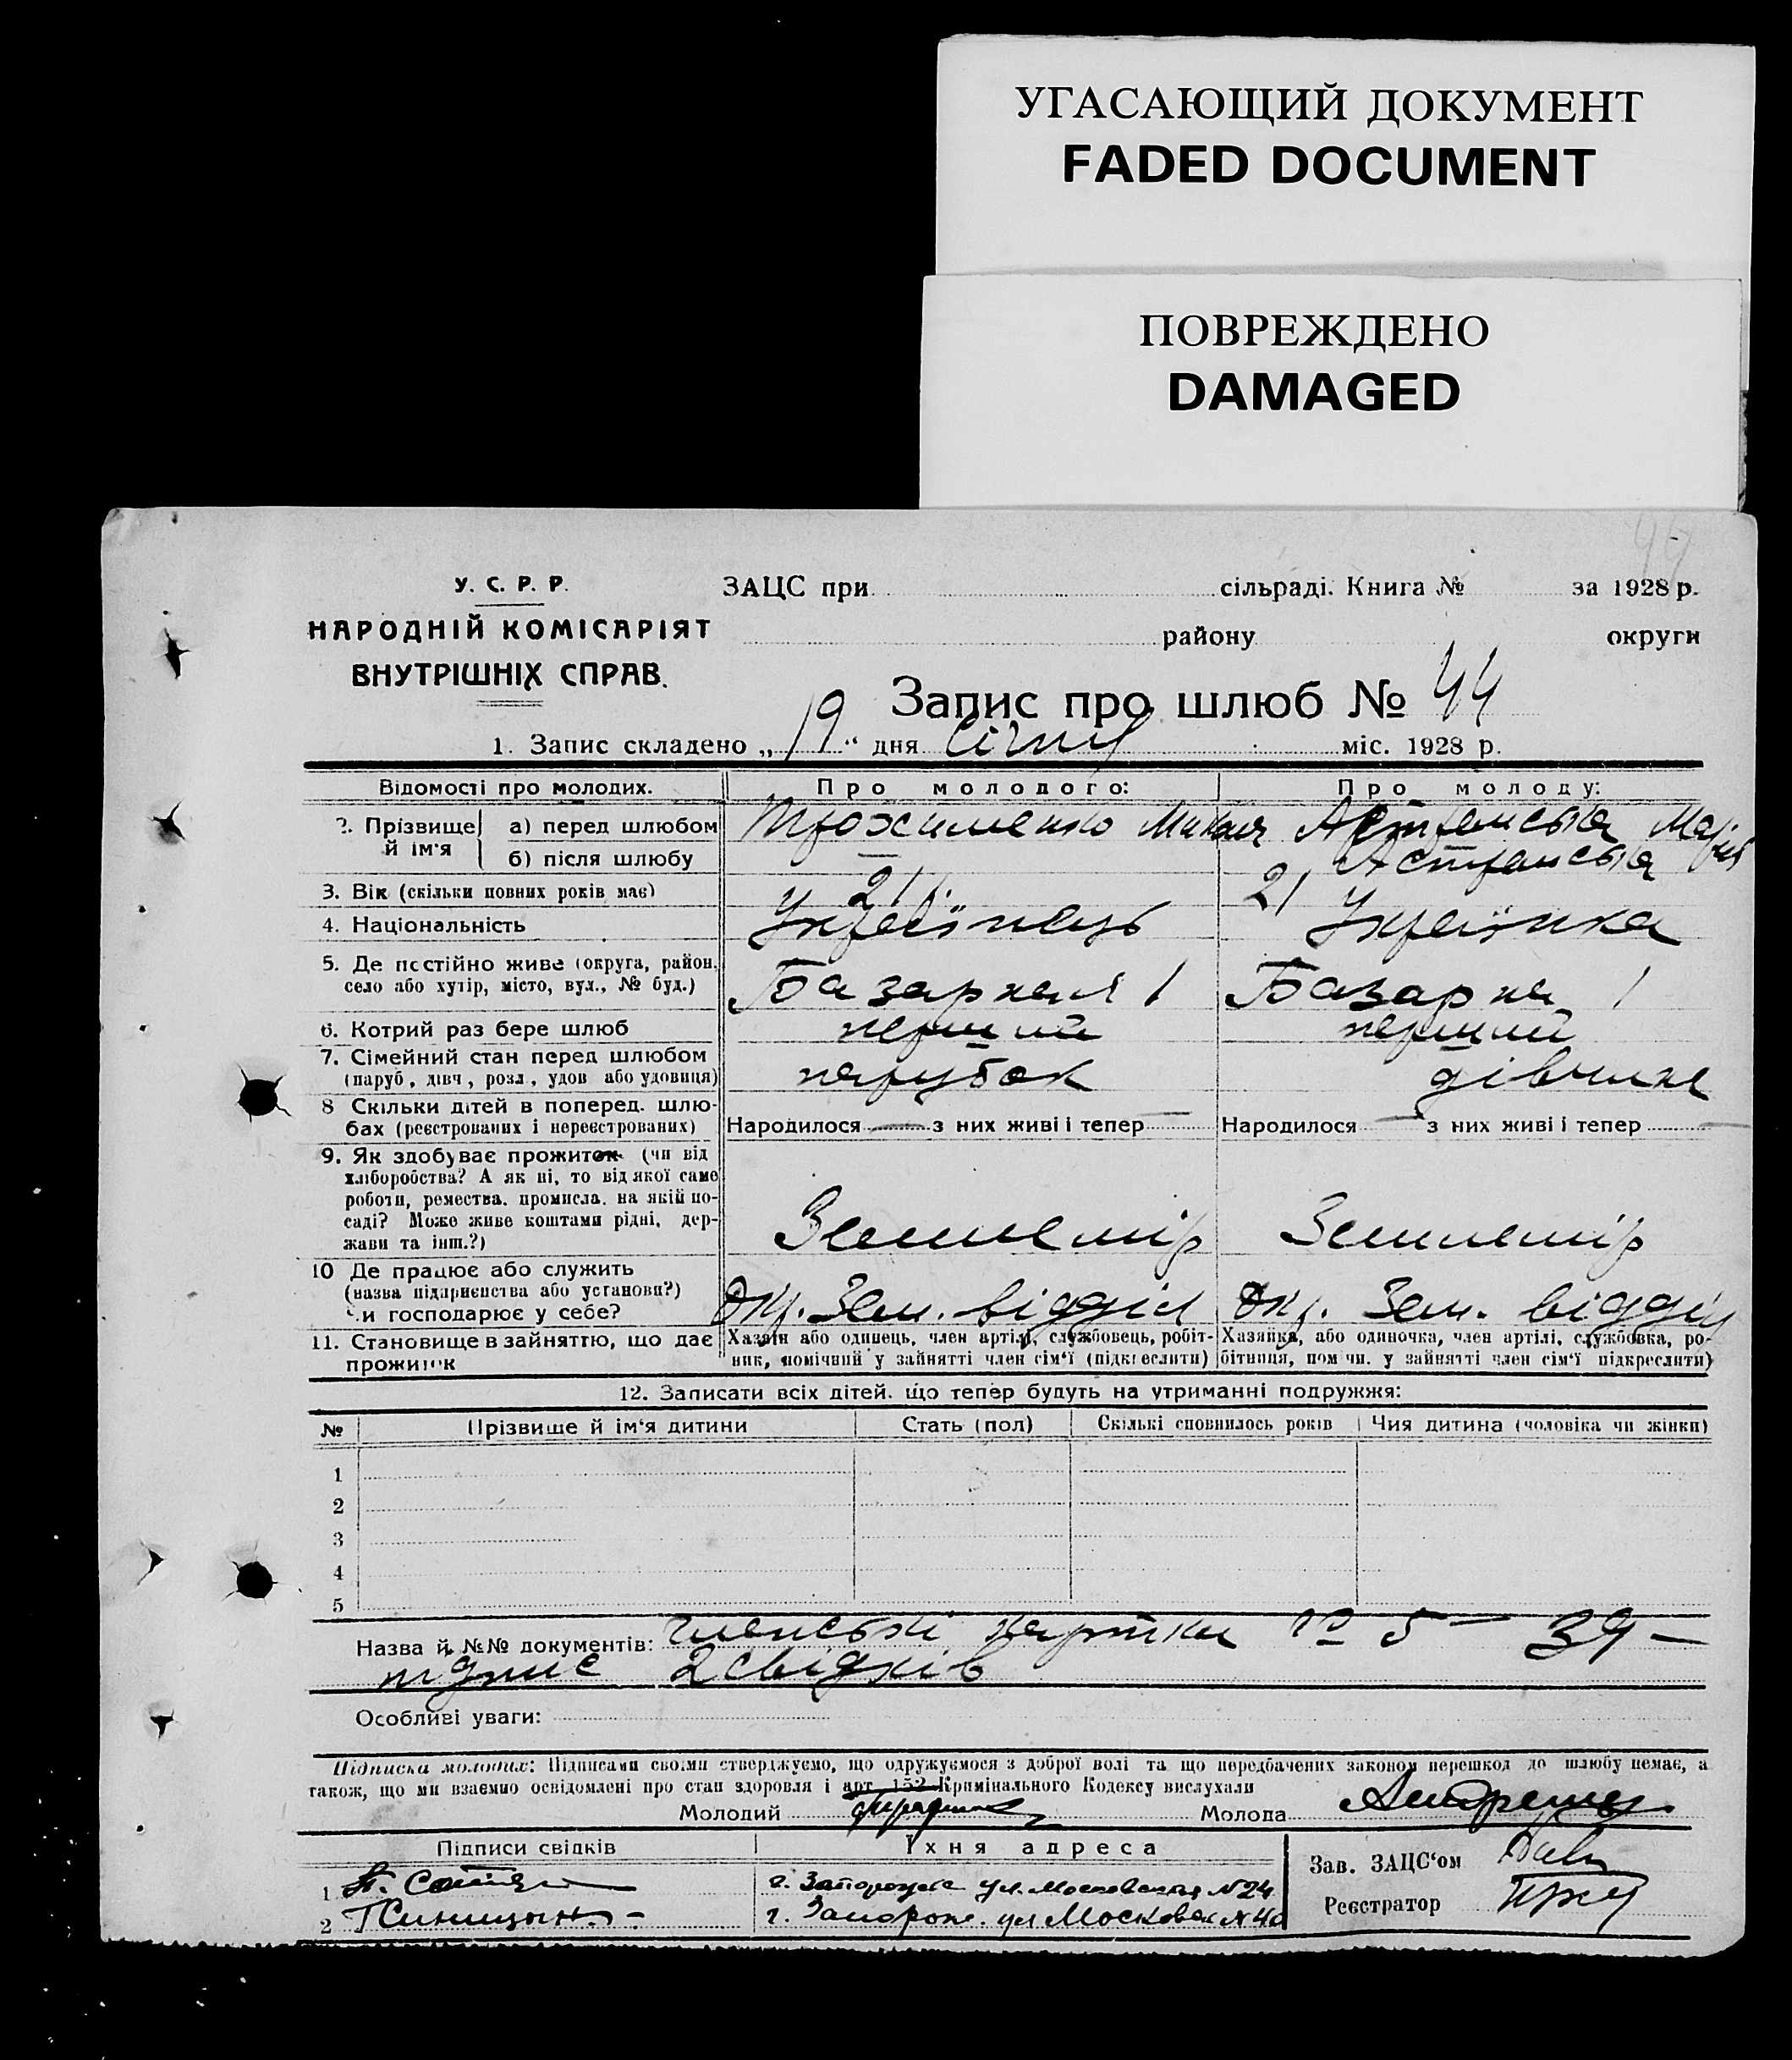 УГАСАЮЩИЙ ДОКУМЕНТ
FADED DOCUMENT
ПОВРЕЖДЕНО
DAMAGED
У. С. Р. Р.
НАРОДНІЙ КОМІСАРІЯТ
ВНУТРІШНІХ СПРАВ.
ЗАЦС при сільраді. Книга № за 1928 р.
району округи
Запис про шлюб № 44
1. Запис складено „19“ дня січня міс. 1928 р.
Відомості про молодих. Про молодого: Про молоду:
2. Прізвище й ім'я а) перед шлюбом Марія
б) після шлюбу
3. Вік (скільки повних років має) 21 21
4. Національність Українець Українка
5. Де постійно живе (округа, район, село або хутір, місто, вул., № буд.) Базарная 1 Базарна 1
6. Котрий раз бере шлюб перший перший
7. Сімейний стан перед шлюбом (паруб., дівч., розл., удов. або удовиця) парубок дівчина
8 Скільки дітей в поперед. шлюбах (реєстрованих і нереєстрованих) Народилося — з них живі і тепер — Народилося — з них живі і тепер —
9. Як здобуває прожиток (чи від хліборобства? А як ні, то від якої саме роботи, ремества, промисла, на якій посаді? Може живе коштами рідні, держави та інш.?) Землемір Землемір
10 Де працює або служить (назва підприєнства або установи?) Чи господарює у себе? Окр. Зем. відділ Окр. Зем. відділ
11. Становище в зайняттю, що дає прожиток Хазяїн або одинець, член артілі, службовець, робітник, помічний у зайнятті член сім'ї (підкреслити) Хазяйка, або одиночка, член артілі, службовка, робітниця, помічн. у зайнятті член сім'ї підкреслити)
12. Записати всіх дітей, що тепер будуть на утриманні подружжя:
№ Прізвище й ім'я дитини Стать (пол) Скількі сповнилось років Чия дитина (чоловіка чи жінки)
1
2
3
4
5
Назва й №№ документів: членські картки № 5 — 39 —
підпис 2 свідків
Особливі уваги:
Підписка молодих: Підписами своїми стверджуємо, що одружуємося з доброї волі та що передбачених законом перешкод до шлюбу немає, а
також, що ми взаємно освідомлені про стан здоровля і арт. 152 Кримінального Кодексу вислухали
Молодий Молода
Підписи свідків Їхня адреса
Зав. ЗАЦС'ом
1 г. Запорожье ул. Московская № 24
Реєстратор
2 Синицын г. Запорож. ул Московск № 40